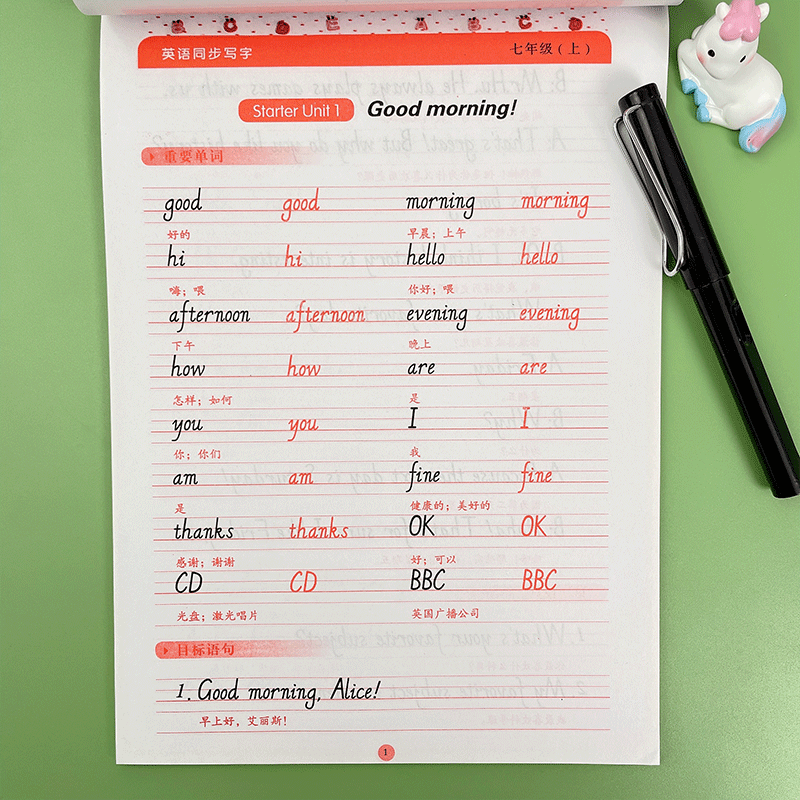 英语同步写字 七年级(上)
Starter Unit 1 Good morning!
重要单词
good good morning morning
好的 早晨；上午
hi hi hello hello
嗨；喂 你好；喂
afternoon afternoon evening evening
下午 晚上
how how are are
怎样；如何 是
you you I I
你；你们 我
am am fine fine
是 健康的；美好的
thanks thanks OK OK
感谢；谢谢 好；可以
CD CD BBC BBC
光盘；激光唱片 英国广播公司
目标语句
1. Good morning, Alice!
早上好，艾丽斯！
1